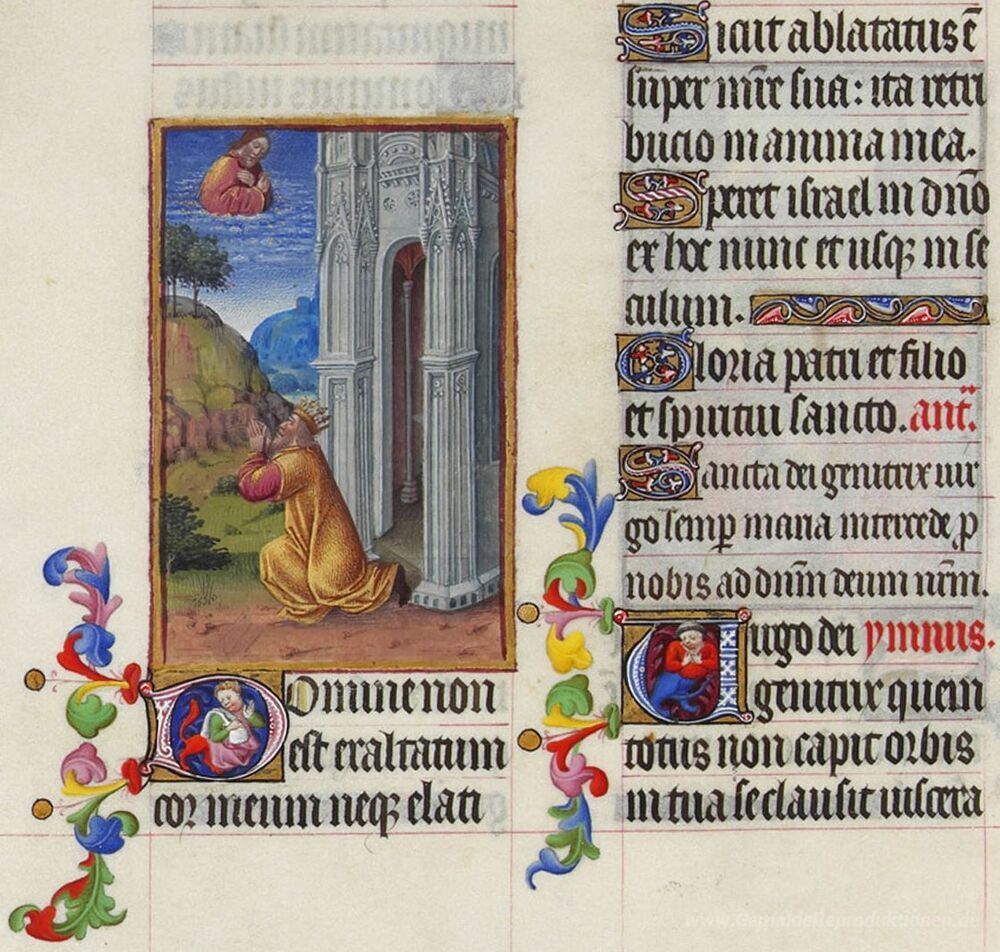 Domine non
est exaltatum
cor meum neqz elati
Sicut ablatatus ē
sup̄er mr̄e sua: ita retri
bucio in anima mea.
Speret israel in dn̄o
ex hoc nunc et usqz in se
culum.
Gloria patri et filio
et spiritui sancto. ant̄.
Sancta dei genitrix uir
go semp̄ maria intercede p̄
nobis ad dn̄m deum nr̄m.
Uirgo dei ymnus.
genitrix quem
totus non capit orbis
in tua se clausit uiscera